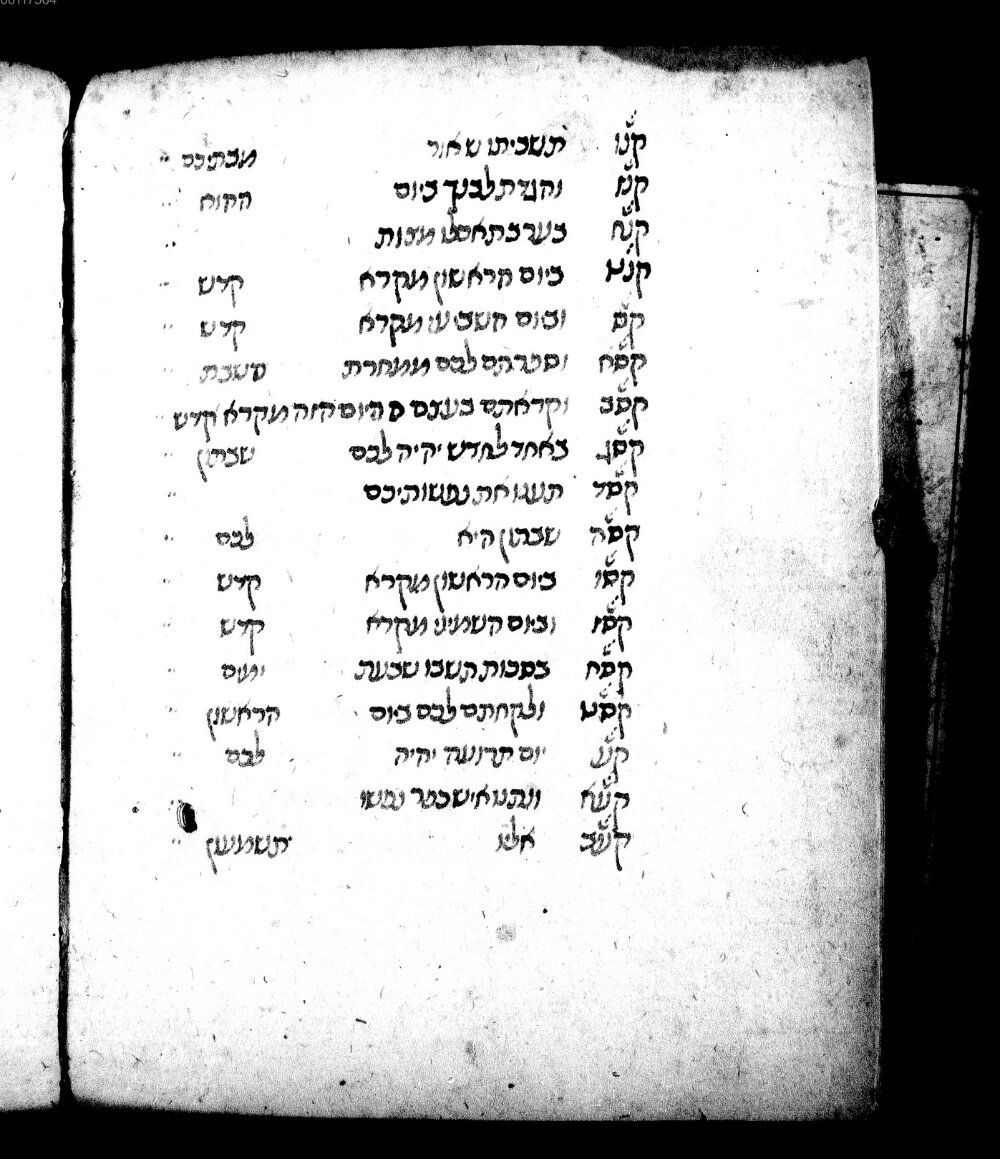 קנו תשביתו שאור מבתיכם
קנז והגדת לבנך ביום ההוא
קנח בערב תאכלו מצות
קנט ביום הראשון מקרא קדש
קס וביום השביעי מקרא קדש
קסא וספרתם לכם ממחרת השבת
קסב וקראתם בעצם היום הזה מקרא קדש
קסג באחד לחדש יהיה לכם שבתון
קסד תענו את נפשותיכם
קסה שבתון היא לכם
קסו ביום הראשון מקרא קדש
קסז וביום השמיני מקרא קדש
קסח בסכות תשבו שבעת ימים
קסט ולקחתם לכם ביום הראשון
קע יום תרועה יהיה לכם
קעא ונתנו איש כפר נפשו
קעב אליו תשמעון